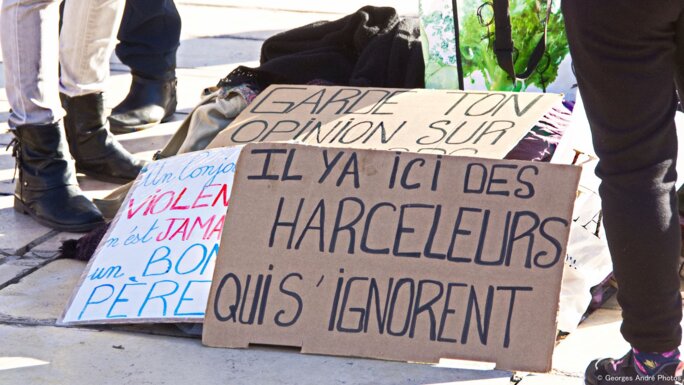 GARDE TON
OPINION SUR
Un Conjoi
VIOLEN
n'est JAMA
un BON
PÈRE
IL Y A ICI DES
HARCELEURS
QUI S'IGNORENT
© Georges André Photos